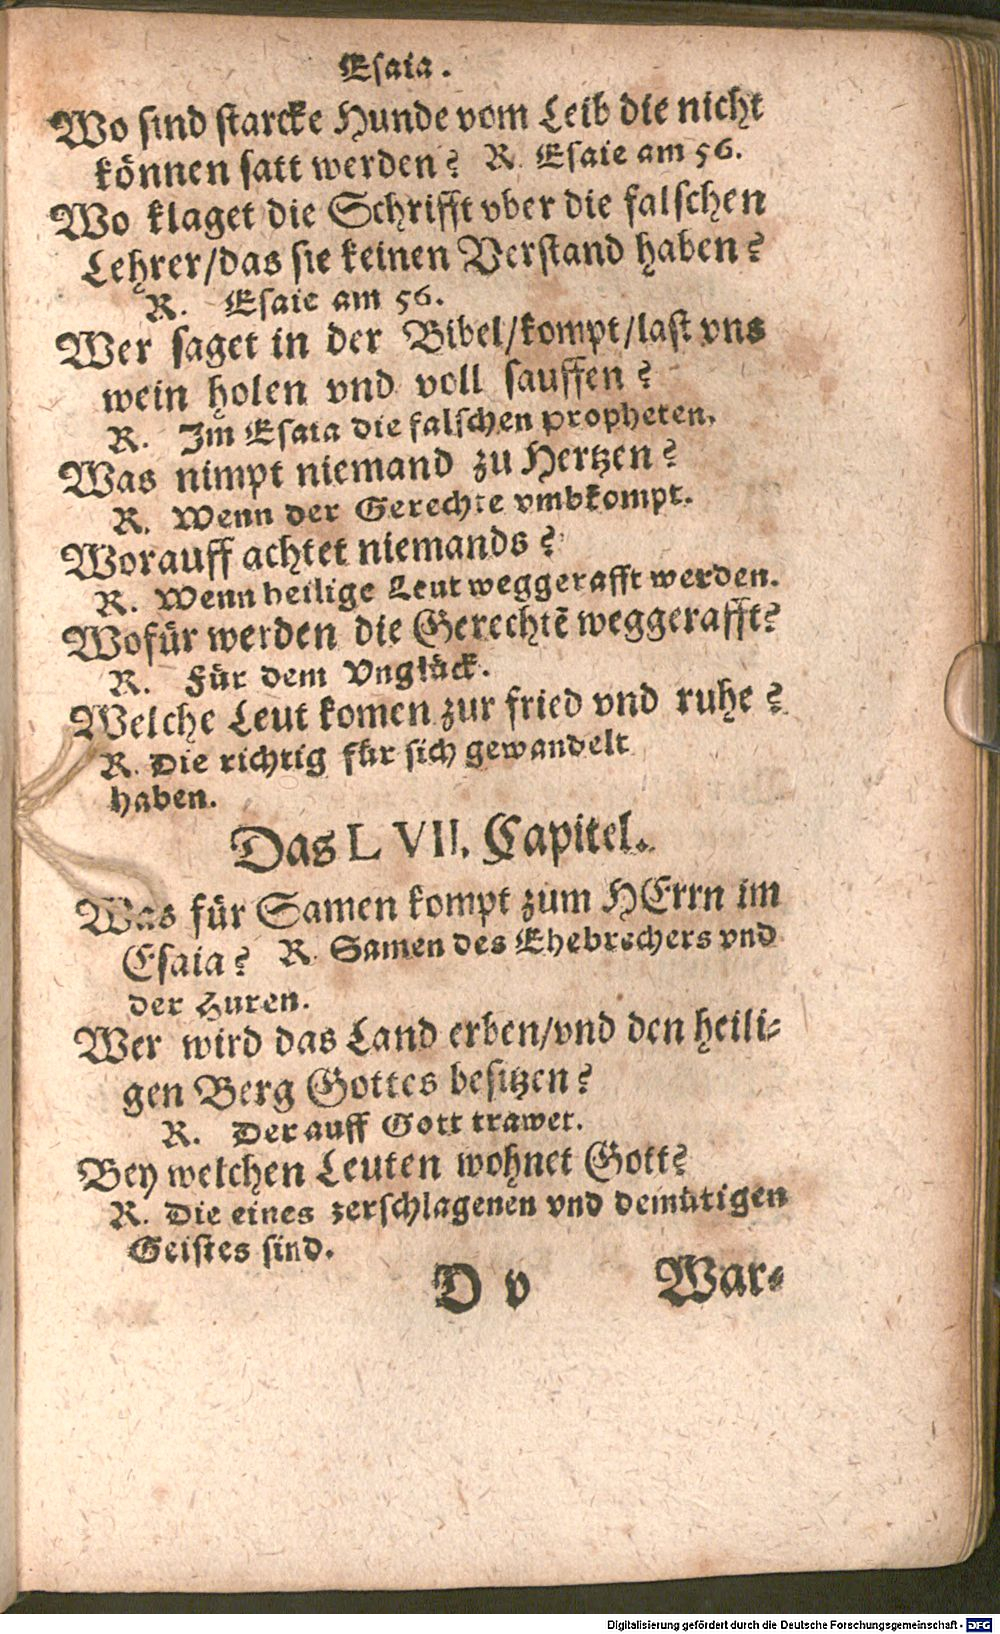 Esaia.
Wo sind starcke Hunde vom Leib die nicht
können satt werden? R. Esaie am 56.
Wo klaget die Schrifft vber die falschen
Lehrer/das sie keinen Verstand haben?
R. Esaie am 56.
Wer saget in der Bibel/kompt/last vns
wein holen vnd voll sauffen?
R. Im Esaia die falschen propheten.
Was nimpt niemand zu Hertzen?
R. Wenn der Gerechte vmbkompt.
Worauff achtet niemands?
R. Wenn heilige Leut weggerafft werden.
Wofür werden die Gerechtē weggerafft?
R. Für dem Vnglück.
Welche Leut komen zur fried vnd ruhe?
R. Die richtig für sich gewandelt
haben.
Das LVII. Capitel.
Was für Samen kompt zum HErrn im
Esaia? R. Samen des Ehebrechers vnd
der Huren.
Wer wird das Land erben/vnd den heili-
gen Berg Gottes besitzen?
R. Der auff Gott trawet.
Bey welchen Leuten wohnet Gott?
R. Die eines zerschlagenen vnd demütigen
Geistes sind.
D v War-
Digitalisierung gefördert durch die Deutsche Forschungsgemeinschaft - DFG